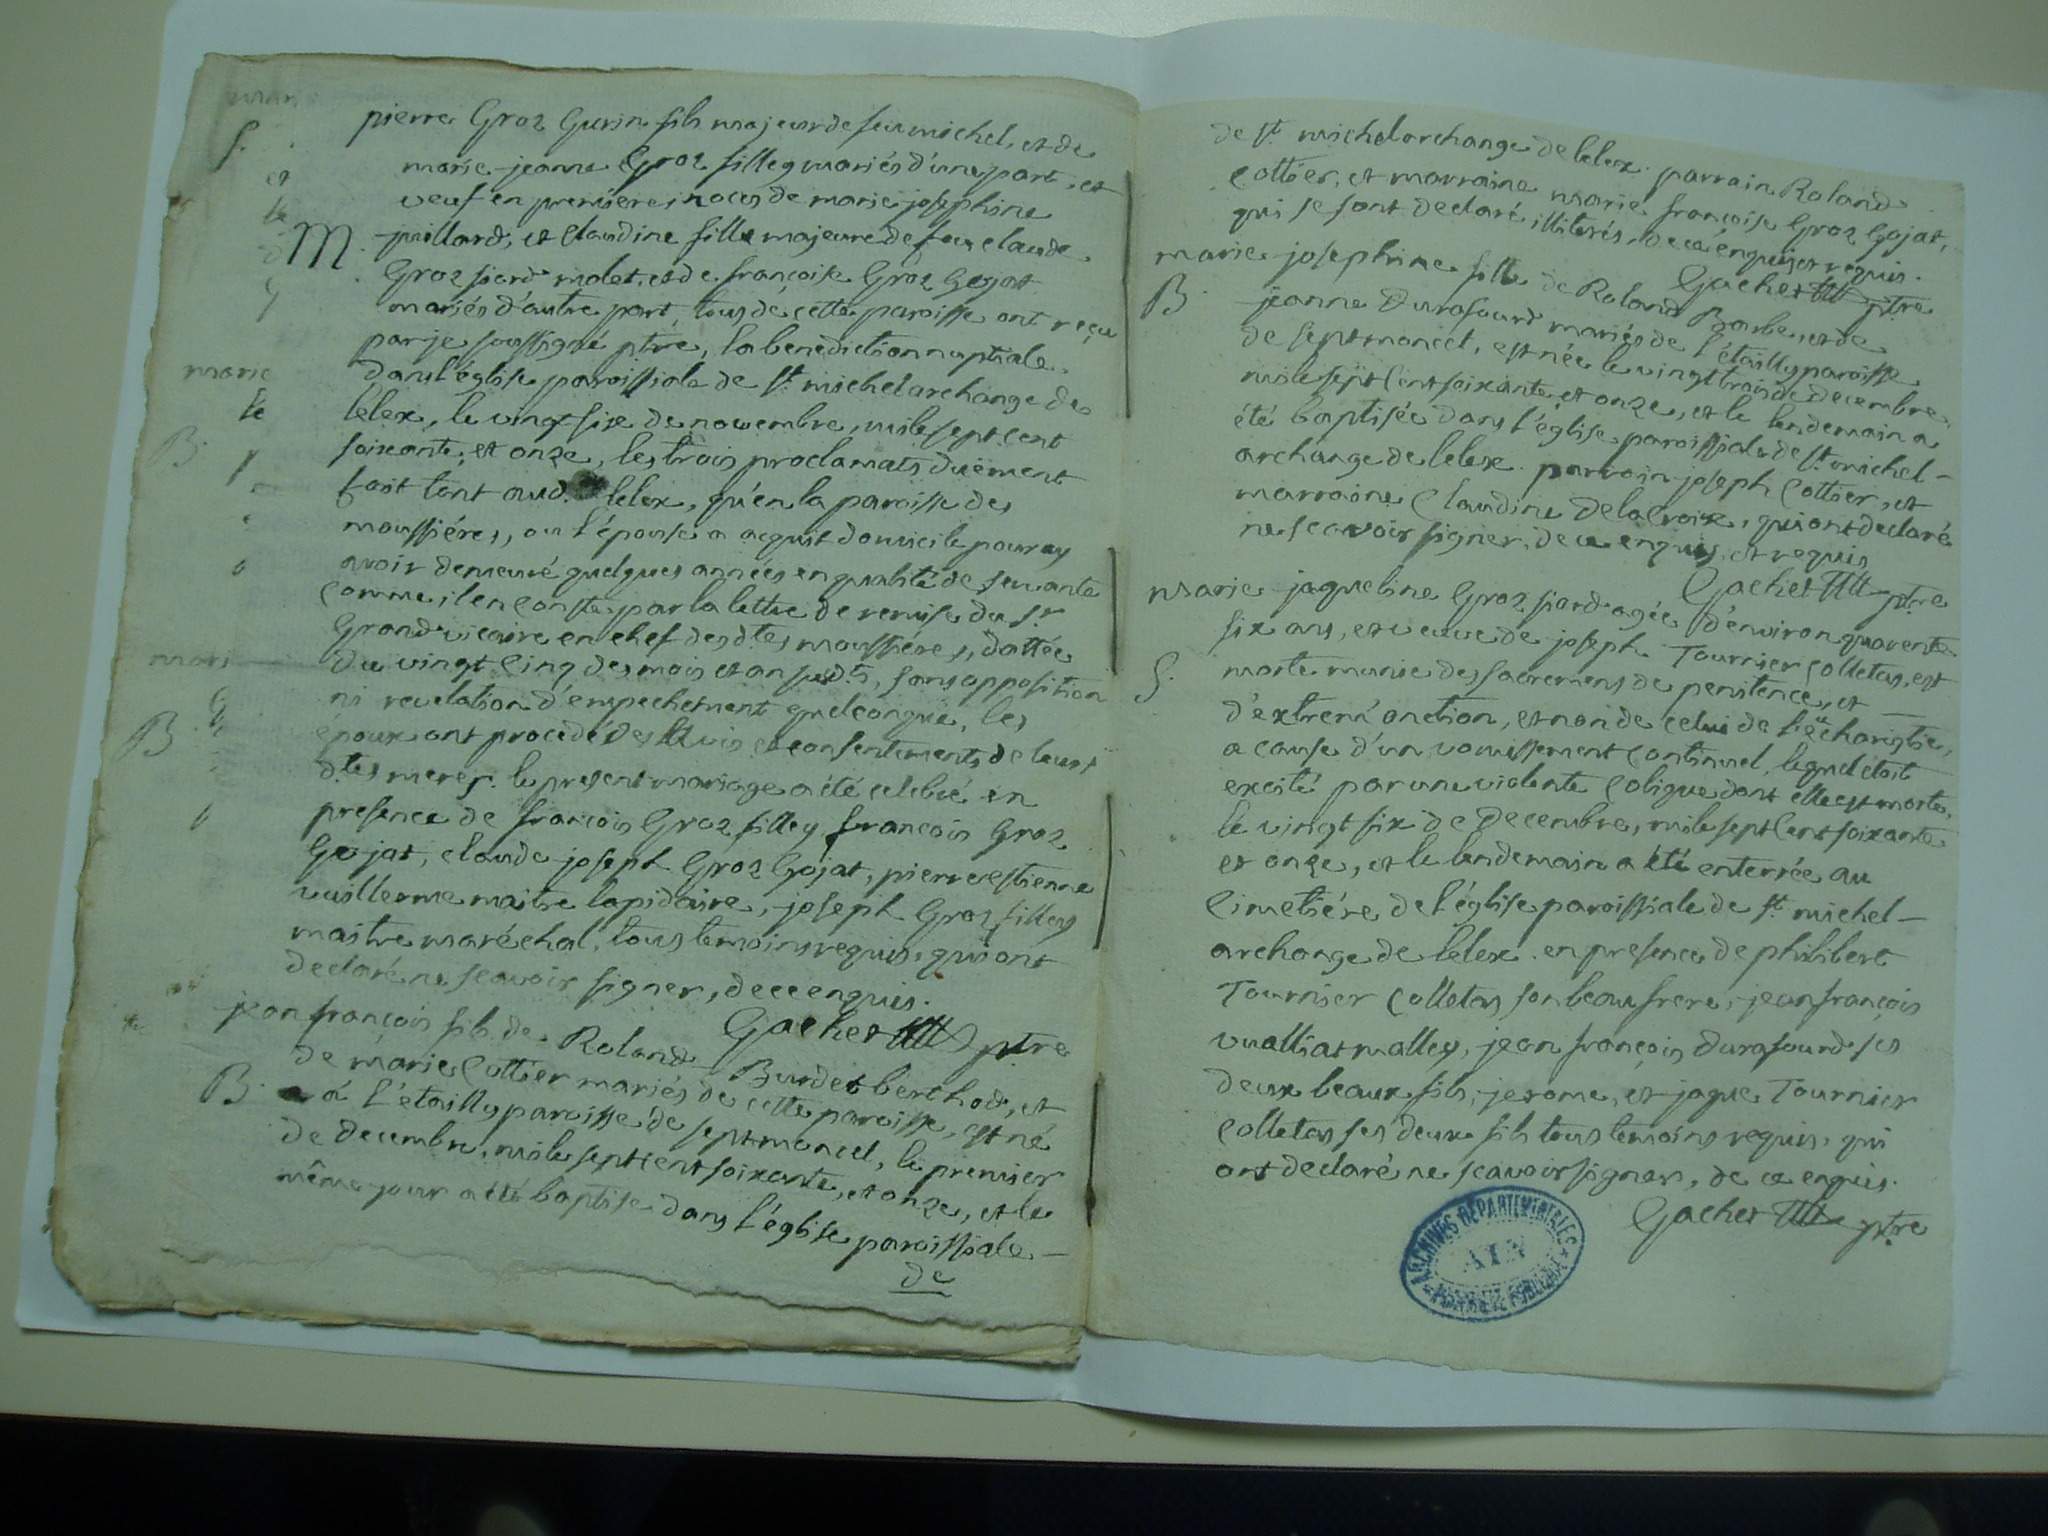 pierre Groz Gurin fils majeur de feu michel, et de
marie-jeanne Groz filley mariés d'une part, et
veuf en premières noces de marie josephine
juillard, et claudine fille majeure de feu claude
Groz piard molet, et de françoise Groz Gojat
mariés d'autre part, tous de cette paroisse ont reçu
par je soussigné ptre, la benediction nuptiale
dans l'église paroissiale de St. michel archange de
lélex, le vingt six de novembre, mile sept cent
soixante, et onze, les trois proclamats duëment
fait tant aud. lelex, qu'en la paroisse des
moussiéres, ou l'épouse a acquit domicile pour y
avoir demeuré quelques années en qualité de servante
comme il en conste par la lettre de remise du sr
Grand vicaire en chef des dtes moussiéres, dattée
du vingt cinq des mois et an susdts, sans opposition
ni revelation d'empechement quelconque, les
époux ont procédé des avis et consentements de leurs
dtes meres. le present mariage a été celebré en
presence de françois Groz filley, françois Groz
Gojat, claude joseph Groz Gojat, pierre estienne
vuillerme maitre lapidaire, joseph Groz filley
maitre maréchal, tous temoins requis, qui ont
declaré ne scavoir signer, de ce enquis.
Gachet ptre
jean françois fils de Roland Burdet berthod, et
de marie Cottier mariés de cette paroisse, est né
B. à l'étailly paroisse de septmoncel, le premier
de decembre, mile sept cent soixante, et onze, et le
même jour a été baptisé dans l'église paroissiale
de
de St. michel archange de lelex. parrain Roland
Cottier, et marraine marie françoise Groz Gojat,
qui se sont declaré illiterés, de ce enquis et requis.
Gachet ptre
marie josephine fille de Roland Barbe, et de
B. jeanne Durafourd mariés de l'étailly paroisse
de septmoncel, est née le vingt trois de decembre
mile sept cent soixante, et onze, et le lendemain a
été baptisée dans l'église paroissiale de St. michel-
archange de lelex. parrain joseph Cottier, et
marraine Claudine Delacroix, qui ont declaré
ne scavoir signer, de ce enquis, et requis
Gachet ptre
marie jaqueline Groz piard agée d'environ quarente
six ans, et veuve de joseph Tournier Colletas, est
S. morte munie des sacremens de penitence, et
d'extrem'onction, et non de celui de l'eucharistie,
a cause d'un vomissement continuel, lequel étoit
excité par une violente colique dont elle est morte,
le vingt six de decembre, mile sept cent soixante
et onze, et le lendemain a été enterrée au
cimetiére de l'église paroissiale de St. michel-
archange de lelex. en presence de philibert
Tournier Colletas son beau frere, jean françois
vualliat malley, jean françois Durafourd ses
deux beaux fils, jerome, et jaque Tournier
Colletas ses deux fils tous temoins requis, qui
ont declaré ne scavoir signer, de ce enquis.
Gachet ptre
ARCHIVES DEPARTEMENTALES
AIN
S.
M.
marie
B.
B.